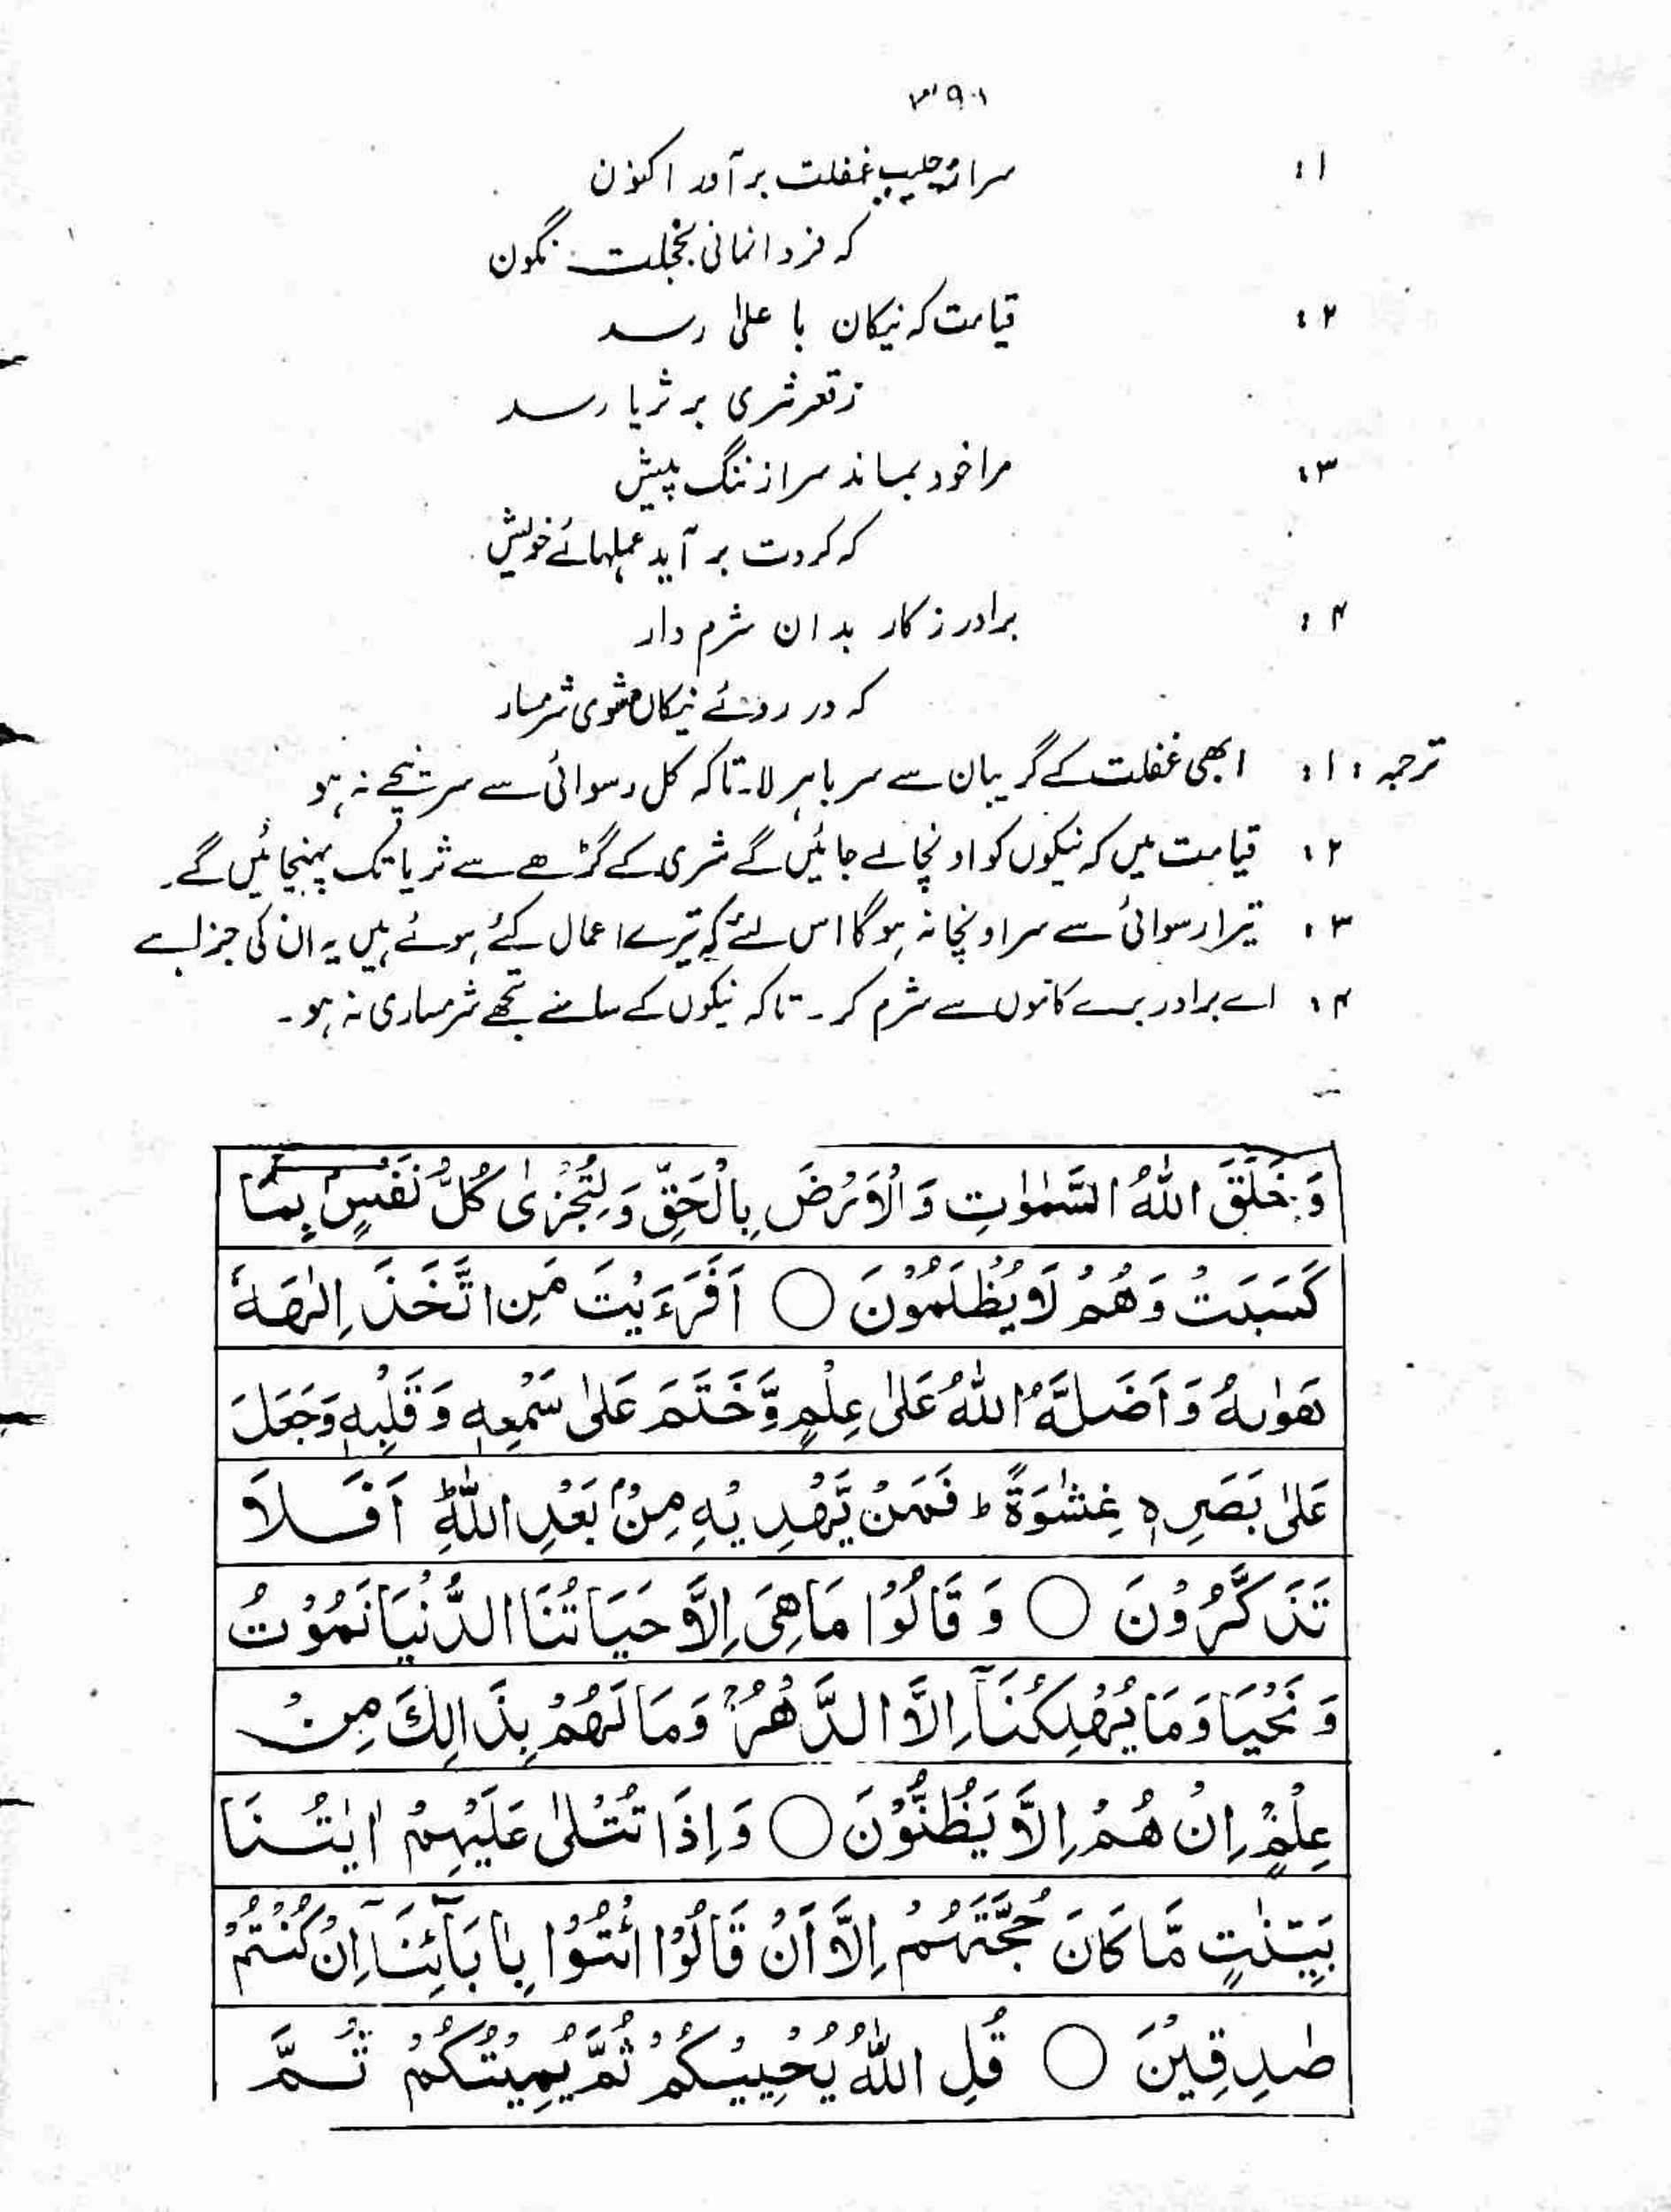 ۳۹۱
۱: سر از جیب غفلت بر آور اکنون
که فردا نمانی بخجلت نگون
۲: قیامت که نیکان با علیٰ رسد
ز قعر ثری بر ثریا رسد
۳: مرا خود بماند سر از ننگ پیش
که کردت بر آید عملہائے خویش
۴: برادر ز کار بدان شرم دار
که در روئے نیکاں شوی شرمسار
ترجمہ: ۱: ابھی غفلت کے گریبان سے سر باہر لا۔ تاکہ کل رسوائی سے سر نیچے نہ ہو
۲: قیامت میں کہ نیکوں کو اونچا لے جائیں گے ثری کے گڑھے سے ثریا تک پہنچائیں گے۔
۳: تیرا رسوائی سے سر اونچا نہ ہو گا اس لئے کہ تیرے اعمال کئے ہوئے ہیں یہ ان کی جزا ہے
۴: اے برادر برے کاموں سے شرم کر۔ تاکہ نیکوں کے سامنے تجھے شرمساری نہ ہو۔
وَخَلَقَ اللّٰهُ السَّمٰوٰتِ وَالْاَرْضَ بِالْحَقِّ وَلِتُجْزٰی كُلُّ نَفْسٍۭ بِمَا
كَسَبَتْ وَهُمْ لَا يُظْلَمُوْنَ ○ اَفَرَءَيْتَ مَنِ اتَّخَذَ اِلٰهَهٗ
هَوٰىهُ وَاَضَلَّهُ اللّٰهُ عَلٰى عِلْمٍ وَّخَتَمَ عَلٰى سَمْعِهٖ وَقَلْبِهٖ وَجَعَلَ
عَلٰى بَصَرِهٖ غِشٰوَةً ؕ فَمَنْ يَّهْدِيْهِ مِنْۢ بَعْدِ اللّٰهِ ؕ اَفَلَا
تَذَكَّرُوْنَ ○ وَقَالُوْا مَا هِىَ اِلَّا حَيَاتُنَا الدُّنْيَا نَمُوْتُ
وَنَحْيَا وَمَا يُهْلِكُنَآ اِلَّا الدَّهْرُ ۚ وَمَا لَهُمْ بِذَالِكَ مِنْ
عِلْمٍ ۚ اِنْ هُمْ اِلَّا يَظُنُّوْنَ ○ وَاِذَا تُتْلٰى عَلَيْهِمْ اٰيٰتُنَا
بَيِّنٰتٍ مَّا كَانَ حُجَّتَهُمْ اِلَّا اَنْ قَالُوْا ائْتُوْا بِاٰبَآئِنَآ اِنْ كُنْتُمْ
صٰدِقِيْنَ ○ قُلِ اللّٰهُ يُحْيِيْكُمْ ثُمَّ يُمِيْتُكُمْ ثُمَّ